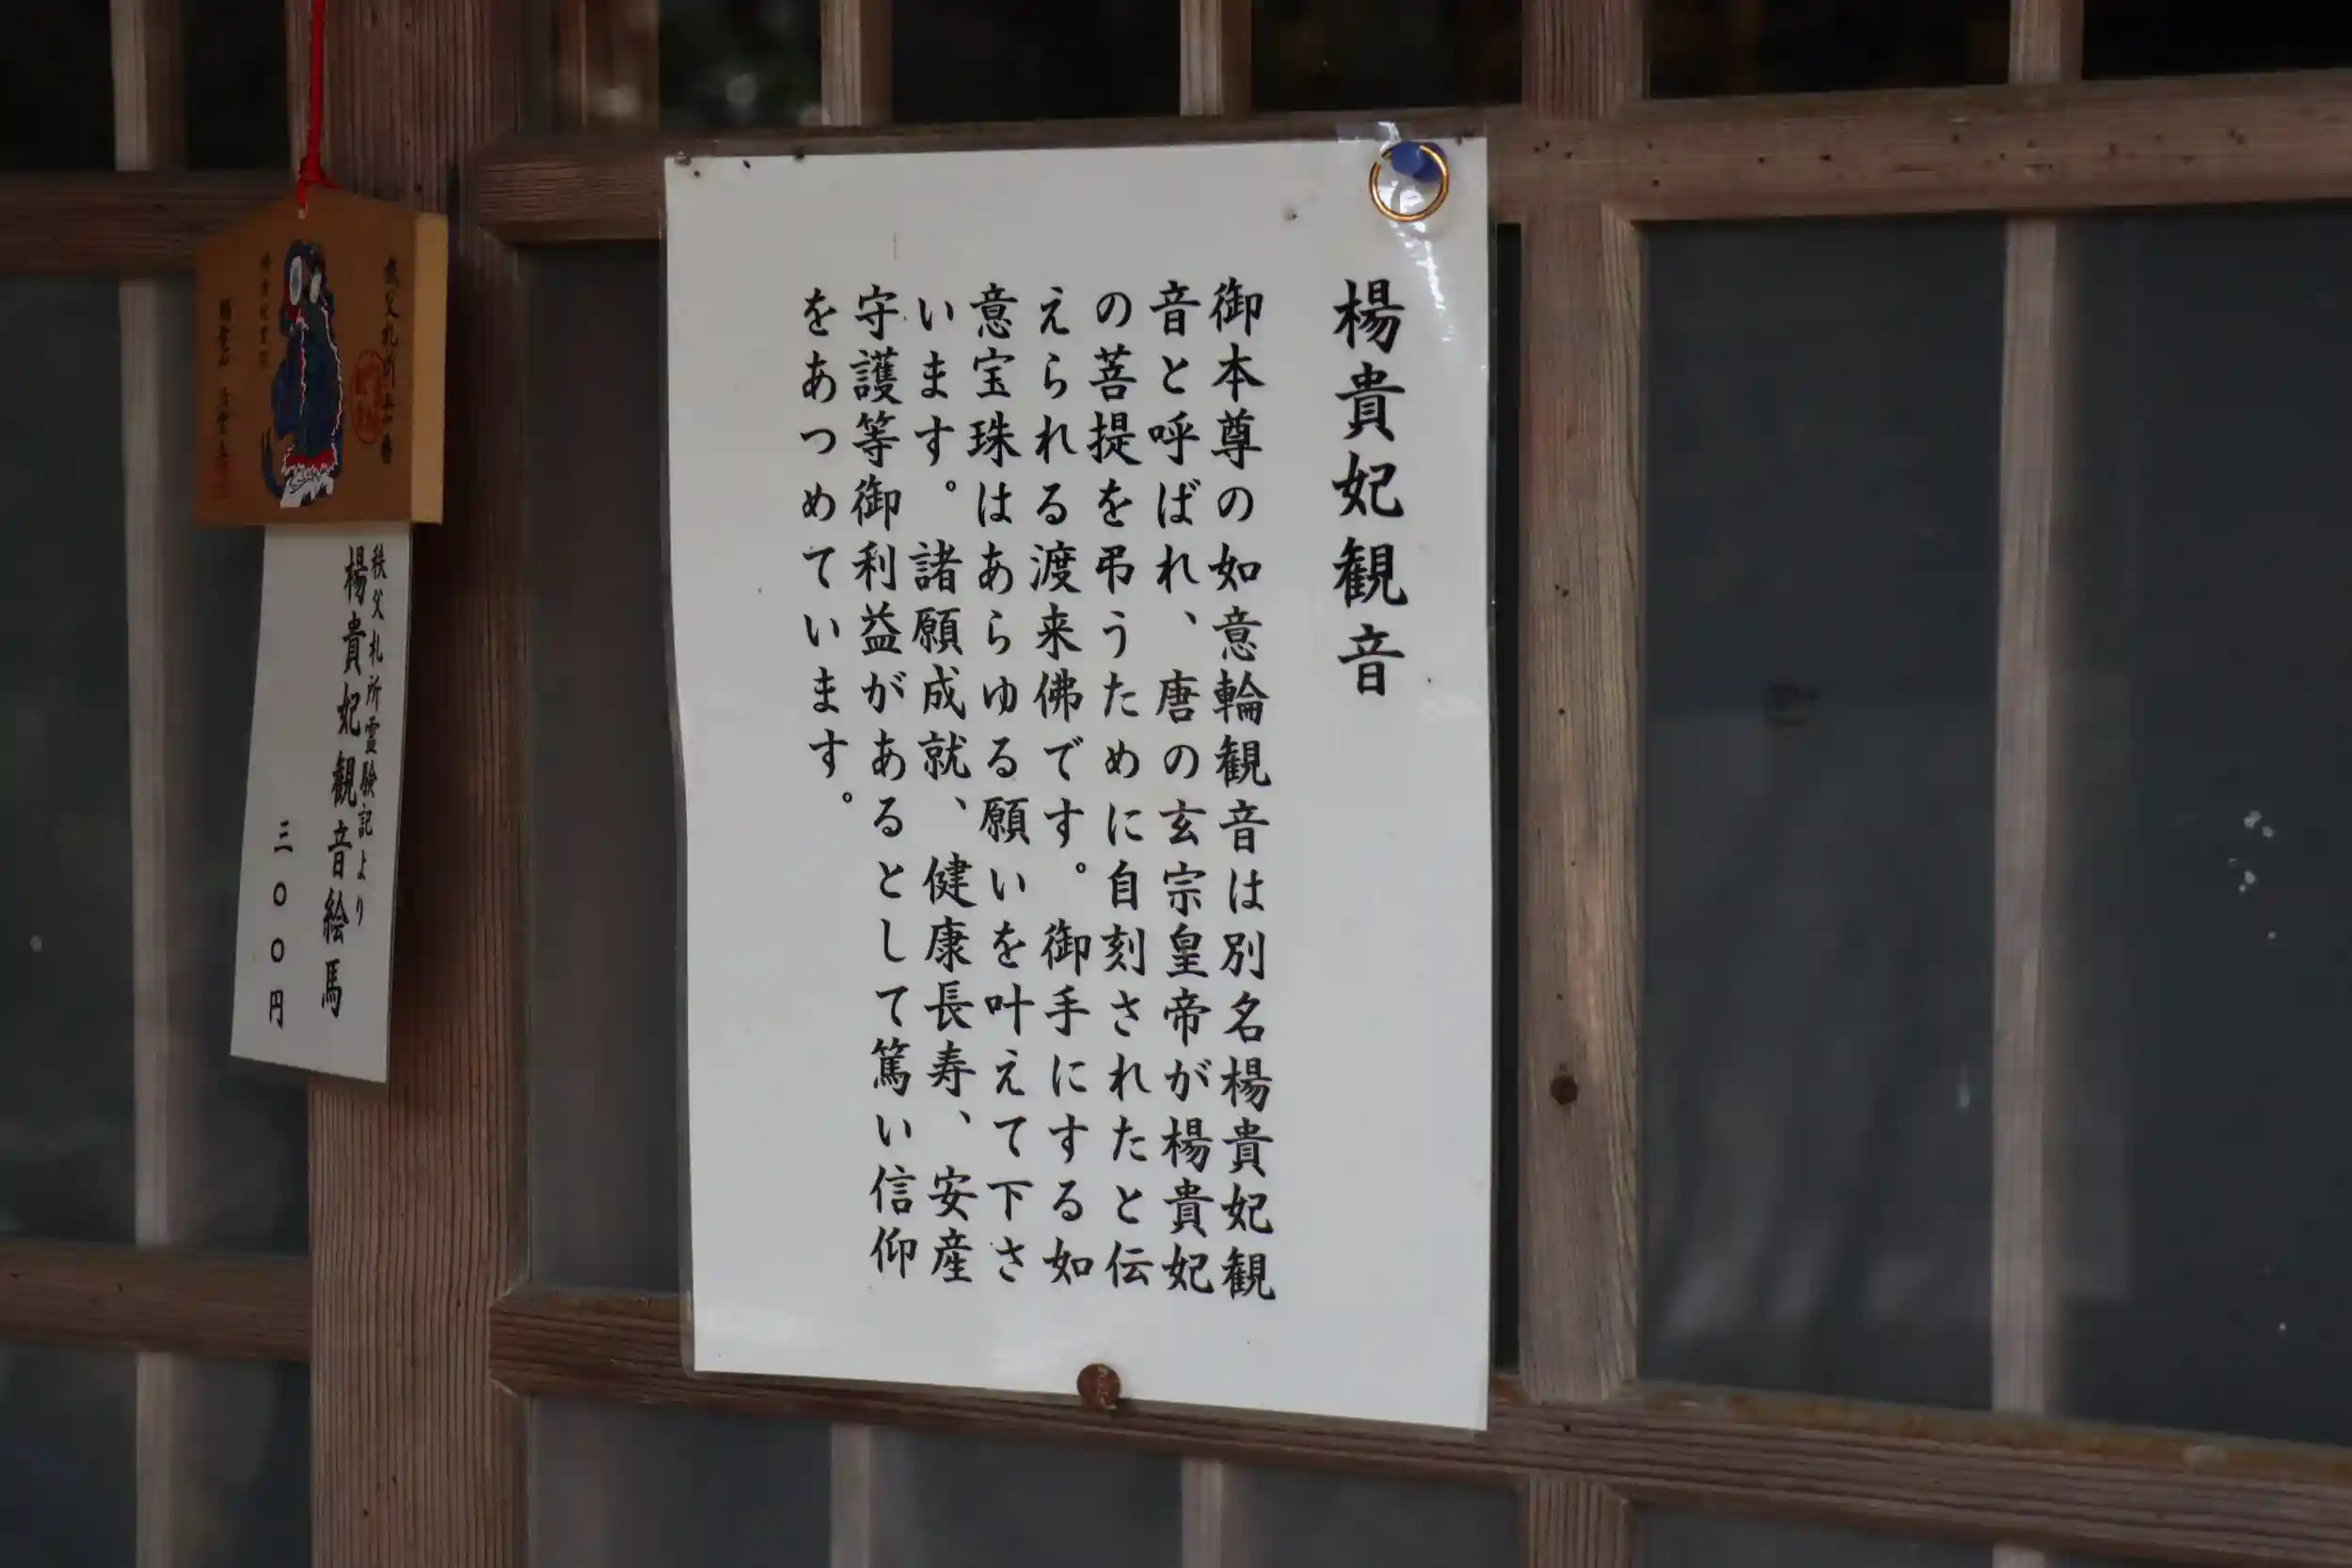 楊貴妃観音
御本尊の如意輪観音は別名楊貴妃観
音と呼ばれ、唐の玄宗皇帝が楊貴妃
の菩提を弔うために自刻されたと伝
えられる渡来佛です。御手にする如
意宝珠はあらゆる願いを叶えて下さ
います。諸願成就、健康長寿、安産
守護等御利益があるとして篤い信仰
をあつめています。
秩父札所霊験記より
楊貴妃観音絵馬
三〇〇円
秩父札所